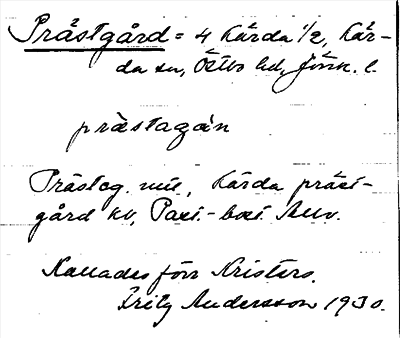 Prästgård = 4 Kärda 1/2, Kär-
da sn, Östbo hd, Jönk. l.
prästagån
Prästeg. mtl, Kärda präst-
gård kv, Past.-bost Anv.
Kallades förr Kristers.
Fritz Andersson 1930.